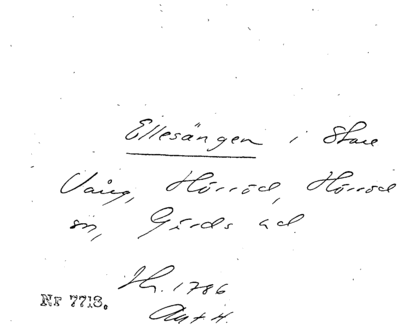 Ellesängen i Stora
Vång, Hörröd, Hörröd
sn, Gärds hd
Hr. 1786
Akt 4.
Nr 7713.